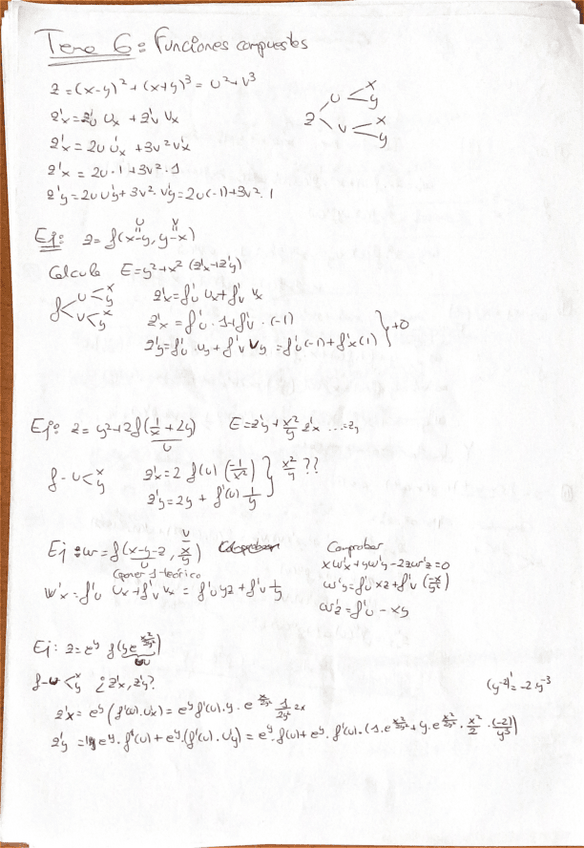 Tema 6: Funciones compuestas
z=(x-y)²+(x+y)³=u²+v³
z'x=z'u u'x + z'v v'x
z'x=2u u'x +3v² v'x
z'x = 2u·1+3v²·1
z'y=2u u'y+3v²·v'y=2u(-1)+3v²·1
z u x y v x y
Ej: z=f(x-y, y-x)
u v
Calcula E=y²+x² (z'x+z'y)
f u x y v x y
z'x=f'u ux+f'v vx
z'x=f'u·1+f'v·(-1)
z'y=f'u·uy+f'v vy=f'u(-1)+f'x(1) }→0
Ej: z=y²+2f(1/x+2y) E=z'y+x²/y z'x ...=2y
u
f-u x y
z'x=2 f(u) (-1/x²) } x²/y ??
z'y=2y + f'(u) 1/y
Ej: w=f(x-y-z, x/y)
u v
Comprobar
xw'x+yw'y-2zw'z=0
w'x=f'u ux+f'v vx = f'u yz+f'v 1/y
w'y=f'u xz+f'v (-x/y²)
w'z=f'u - xy
Ej: z=e^y f(y e^(x²/2y²))
u
f-u x y ¿z'x, z'y?
(y⁻²)'=-2y⁻³
z'x=e^y(f'(u)·ux)=e^y f'(u)·y·e^(x²/2y²) 1/2y² 2x
z'y=e^y·f(u)+e^y·(f'(u)·uy)=e^y·f(u)+e^y·f'(u)·(1·e^(x²/2y²)+y·e^(x²/2y²)·x²/2·(-2)/y³)